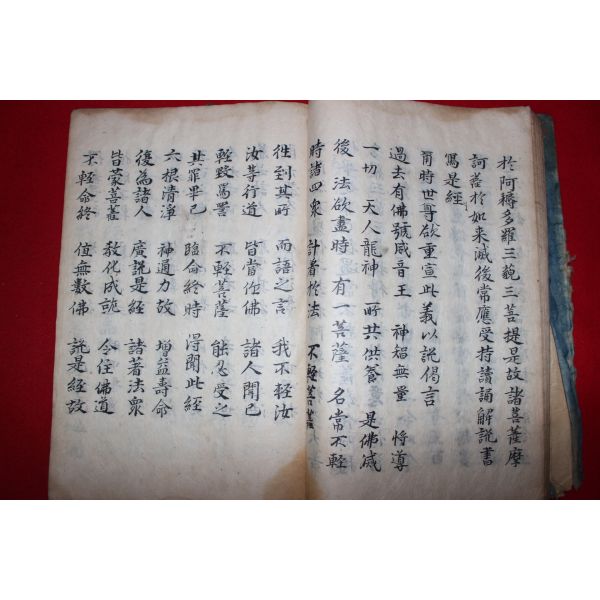 於阿耨多羅三藐三菩提是故諸菩薩摩
訶薩於如来滅後常應受持讀誦解說書
寫是經
爾時世尊欲重宣此義以說偈言
過去有佛號威音王 神智無量 将導
一切 天人龍神 所共供養 是佛滅
後 法欲盡時 有一菩薩 名常不輕
時諸四衆 計着於法 不輕菩薩
徃到其所 而語之言 我不輕汝
汝等行道 皆當作佛 諸人聞已
輕致罵詈 不輕菩薩 能忍受之
其罪畢已 臨命終時 得聞此經
六根清淨 神通力故 增益壽命
後為諸人 廣說是經 諸著法衆
皆蒙菩薩 教化成就 令住佛道
不輕命終 值無數佛 說是經故